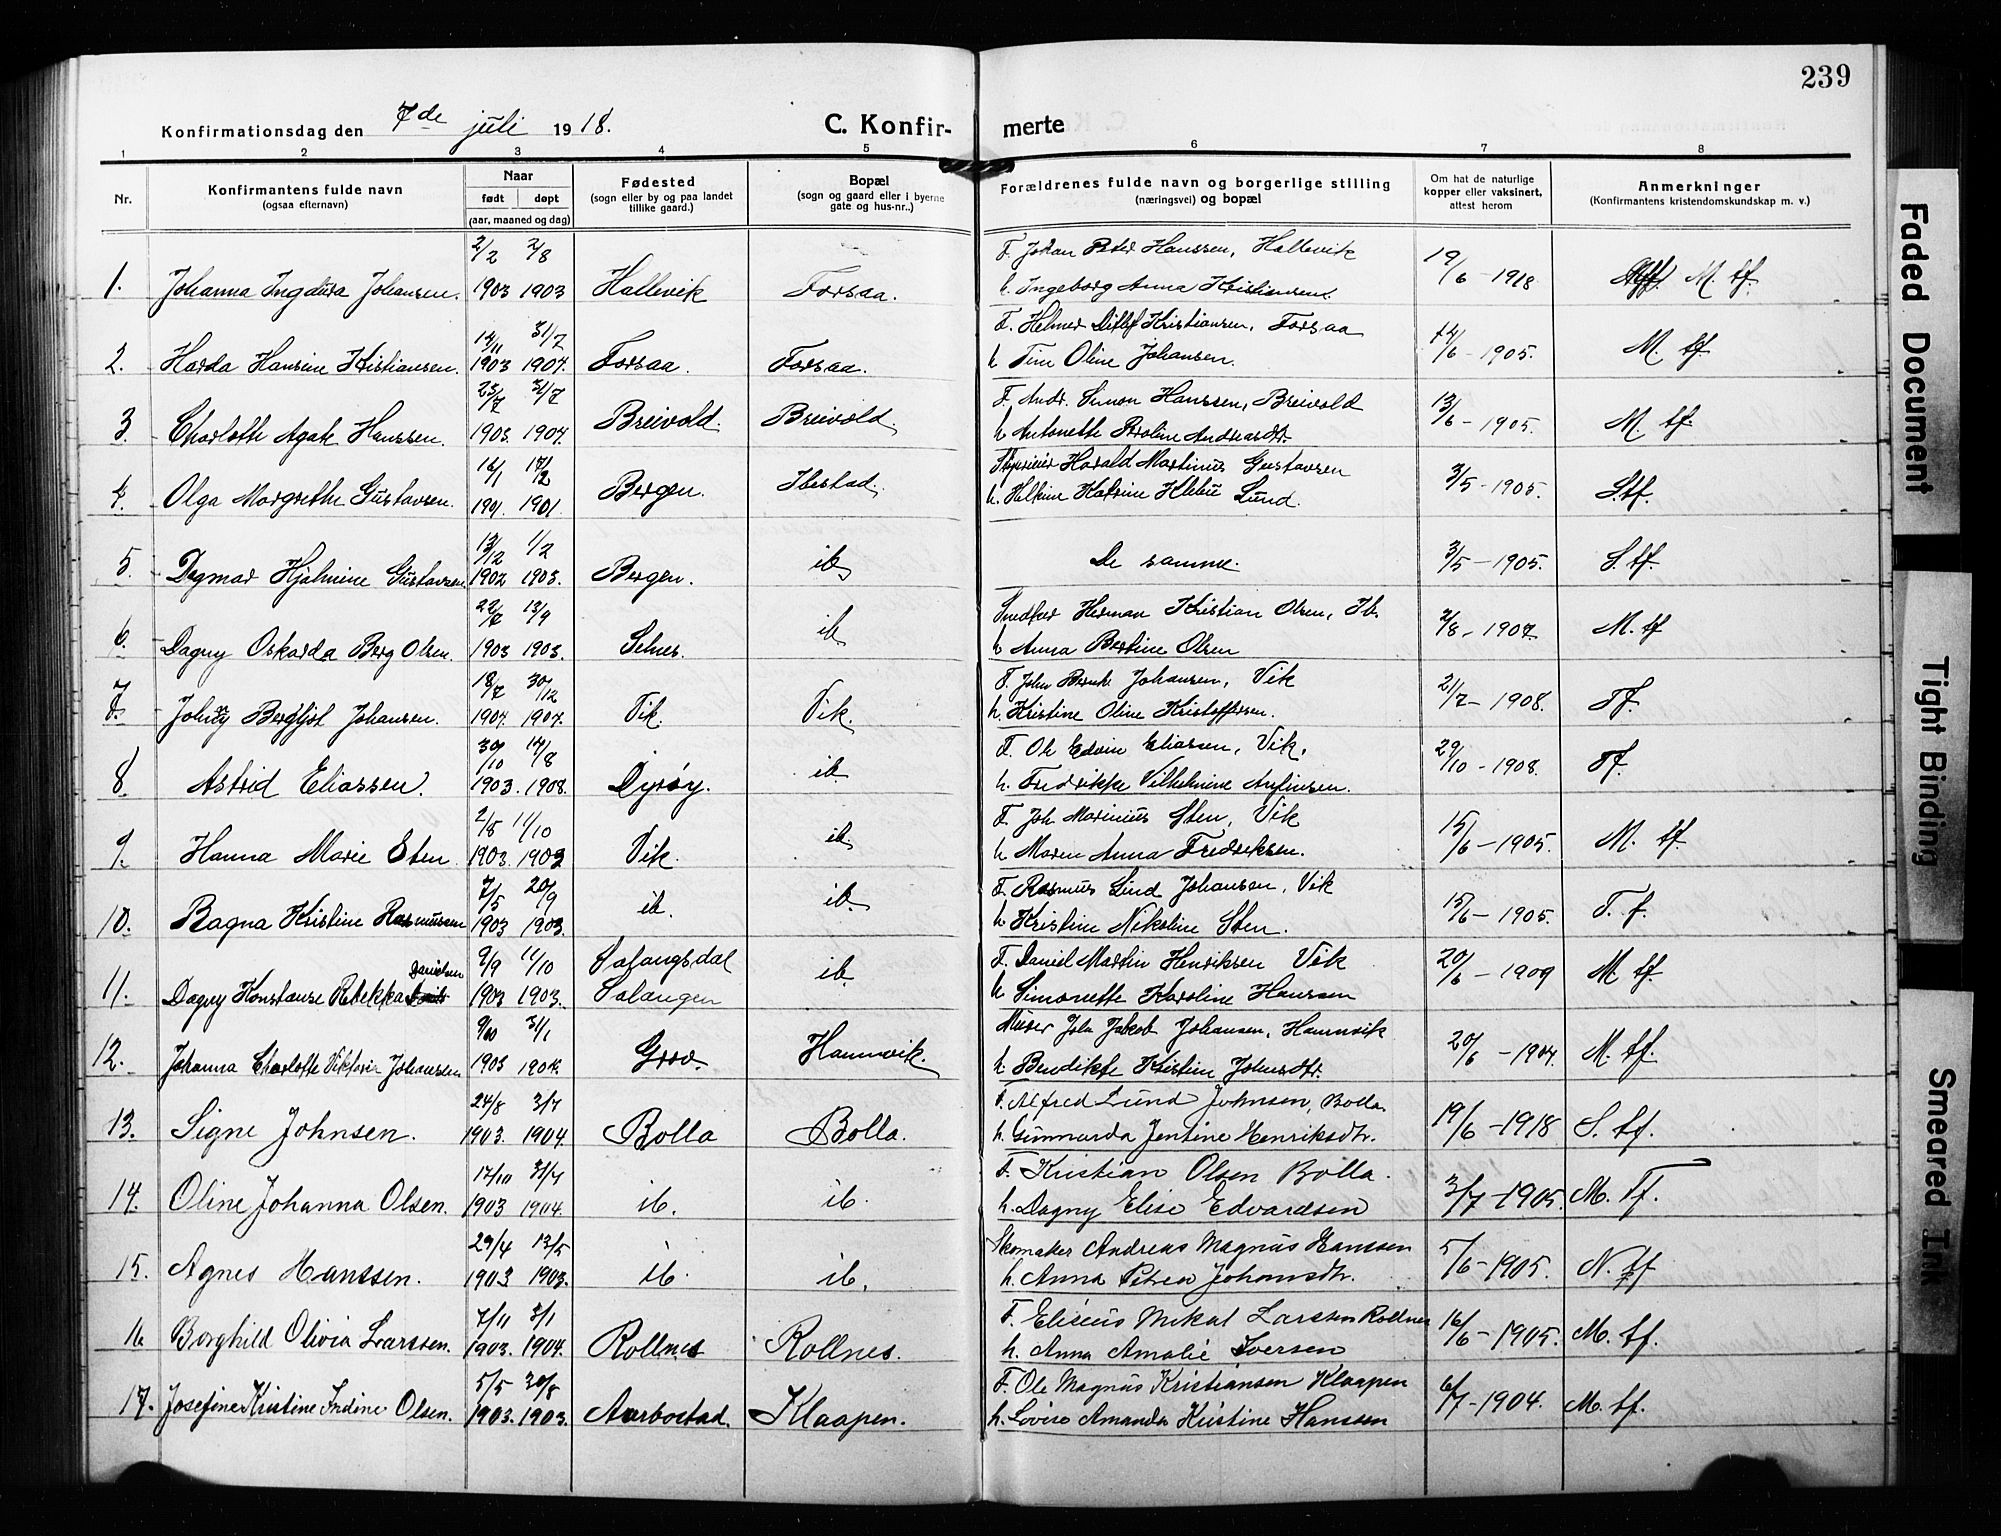 239
Konfirmationsdag den 7de juli 1918.
C. Konfir- merte
1 2 3 4 5 6 7 8
Nr.
Konfirmantens fulde navn
(ogsaa efternavn)
Naar
født døpt
(aar, maaned og dag)
Fødested
(sogn eller by og paa landet
tillike gaard.)
Bopæl
(sogn og gaard eller i byerne
gate og hus-nr..)
Forældrenes fulde navn og borgerlige stilling
(næringsvei) og bopæl
Om hat de naturlige
kopper eller vaksinert,
attest herom
Anmerkninger
(Konfirmantens kristendomskundskap m. v.)
2/2 2/8 F. Johan Peter Hanssen, Hallevik
1. Johanna Ingdura Johansen. 1903 1903 Hallevik Forsaa. h. Ingeborg Anna Kristiansen. 19/6 - 1918 M. tf.
12/11 31/7 F. Helmer Ditlef Kristiansen, Forsaa
2. Harda Hansine Kristiansen. 1903 1904. Forsaa. Forsaa. h Oline Johansen. 14/6 - 1905. M. tf
23/7 31/7 F. Andr. Simon Hanssen, Breivold
3. Charlotte Agate Hanssen. 1903. 1904. Breivold. Breivold. h Antonette Andreasdtr. 13/6 - 1905. M. tf.
16/1 17/2 Harald Martinus Gustavsen
4. Olga Margrethe Gustavsen. 1901. 1901. Bergen. Ibestad. h. Katrine Lund. 3/5 - 1905. S. tf.
13/12 1/2
5. Dagmar Hjalmine Gustavsen 1902 1903. Bergen. ib De samme. 3/5 - 1905. S. tf.
22/7 13/9 Snedker Herman Kristian Olsen, Ib.
6. Dagny Oskarda Berg Olsen. 1903 1903. Selnes. ib h Anna Bertine Olsen 2/8 - 1907. M. tf
18/7 30/12 F. John Johansen, Vik
7. Bergljot Johansen. 1904. 1904. Vik. Vik. h. Kristine Oline Kristoffersen. 21/7 - 1908. Tf.
30/10 14/8 F. Ole Edvin Eliassen, Vik.
8. Astrid Eliassen. 1903. 1908. Dyrøy. ib h. Fredrikke Vilhelmine 29/10 - 1908. Tf.
2/8 11/10 F. Joh Marinius Sten, Vik
9. Hanna Marie Sten 1903. 1903 Vik. ib h Maren Anna Fredriksen. 15/6 - 1905. M. tf.
7/5 20/9 F. Rasmus Lind Johansen, Vik
10. Ragna Kristine Rasmussen 1903 1903. ib. ib. h Kristine Nikoline Sten. 15/6 - 1905. T. f.
Danielsen 9/9 11/10 Salangsdal F. Daniel Martin Henriksen Vik
11. Dagny Konstanse Rebekka 1903 1903. Salangen ib. h Simonette Karoline Hanssen 20/6 - 1909 M. tf
9/10 31/1 Joh Jakob Johansen, Hamnvik
12. Johanna Charlotte Viktoria Johansen 1903 1904. Grov. Hamnvik. h. Bendikte Kristine Johnsdtr. 20/6 - 1904. M. tf.
24/8 3/7 F. Alfred Lund Johnsen, Bolla
13. Signe Johnsen. 1903. 1904 Bolla Bolla. h. Gunnarda Jentine Henriksdtr. 19/6 - 1918 S. tf.
17/10 31/7 F. Kristian Olsen Bolla.
14. Oline Johanna Olsen. 1903 1904. ib. ib. h. Dagny Elise Edvardsen 3/7 - 1905. M. Tf.
29/4 13/5 Skomaker Andreas Magnus Hanssen
15. Agnes Hanssen. 1903 1903. ib. ib. h. Anna Petrea Johansdtr. 5/6 - 1905. N. tf
7/11 3/1 F. Eliseus Mikal Larssen Rollnes
16 Borghild Olivia Larssen. 1903. 1904. Rollnes Rollnes. h. Anna Amalie Iversen 16/6 - 1905. M. tf.
5/5 30/8 F. Ole Magnus Kristiansen Klaapen
17. Josefine Kristine Indine Olsen. 1903. 1903. Aarbostad. Klaapen. h. Lovise Amanda Kristine Hanssen 6/7 - 1904. M. tf.
Faded Document
Tight Binding
Smeared Ink